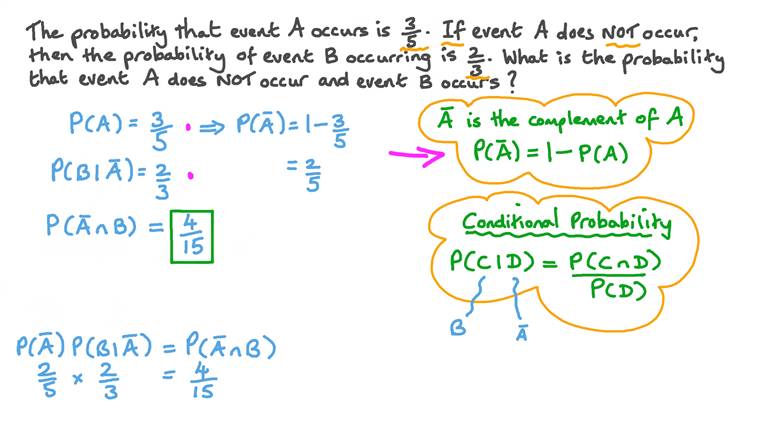 The probability that event A occurs is 3/5. If event A does NOT occur,
then the probability of event B occurring is 2/3. What is the probability
that event A does NOT occur and event B occurs?
P(A) = 3/5 ⇒ P(Ā) = 1 - 3/5
= 2/5
P(B|Ā) = 2/3
P(Ā∩B) = 4/15
Ā is the complement of A
P(Ā) = 1 - P(A)
Conditional Probability
P(C|D) = P(C∩D)/P(D)
B Ā
P(Ā)P(B|Ā) = P(Ā∩B)
2/5 × 2/3 = 4/15